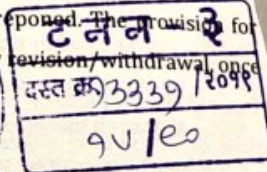 reponed. The provision for
revision/withdrawal once
ट न न - २
दस्त क्र. १३३३९ / २०१९
१५ / ९०